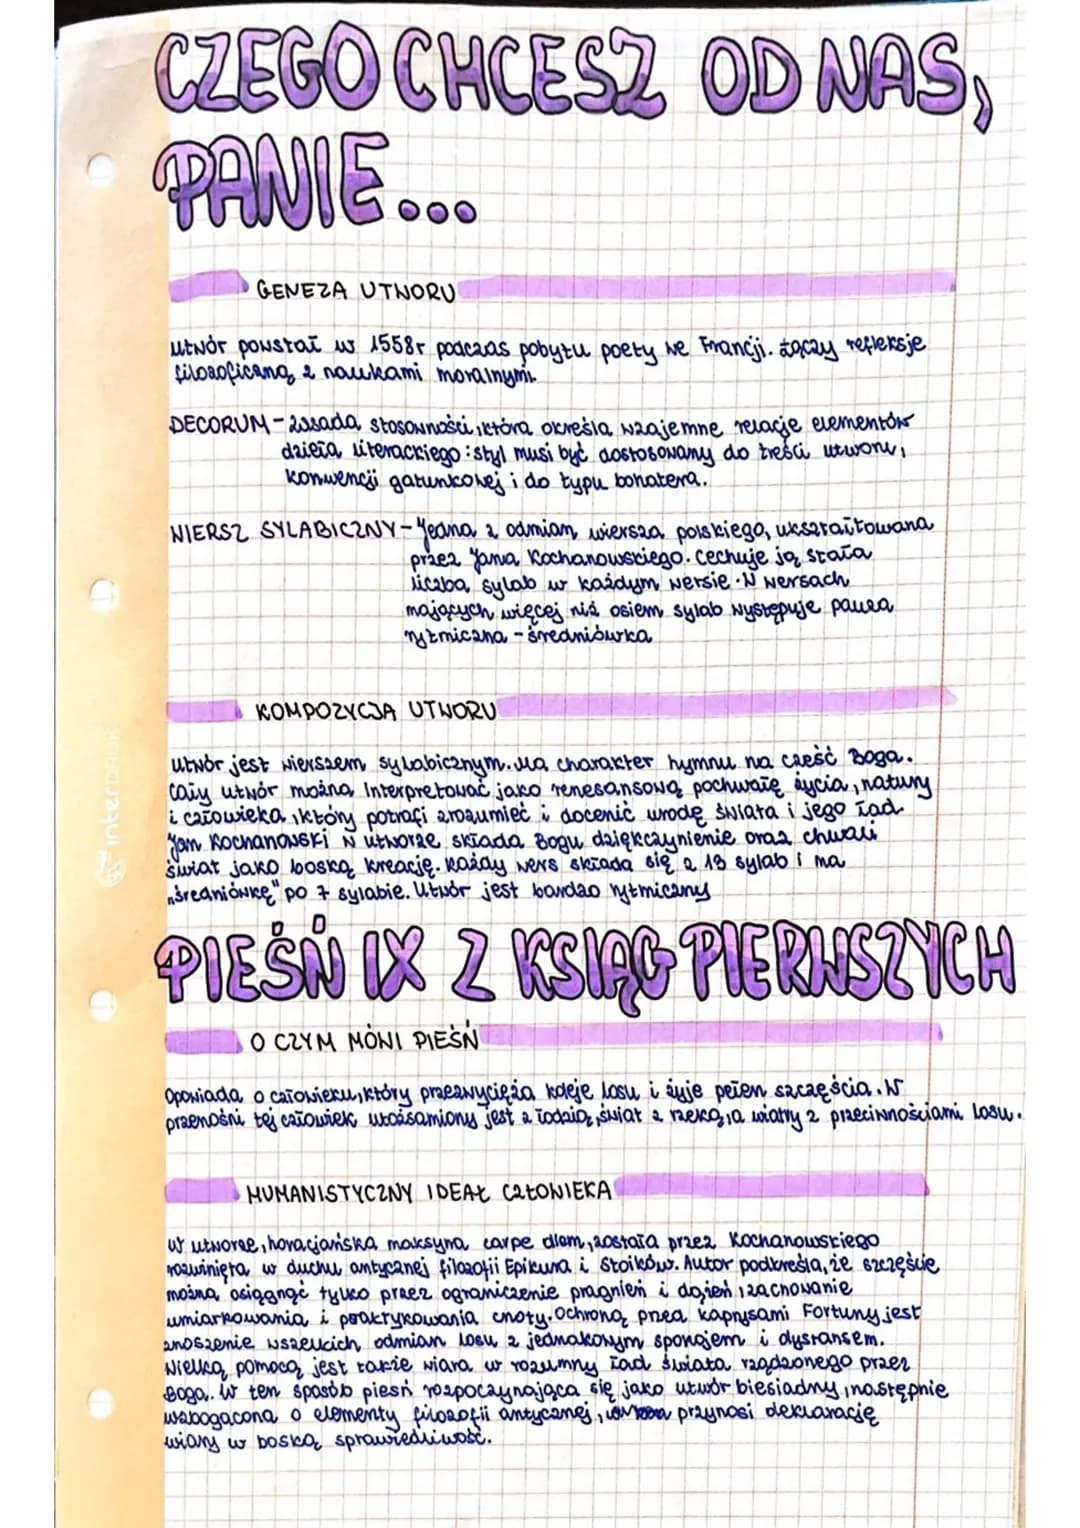 CZEGO CHCESZ OD NAS,
PANIE...
GENEZA UTWORU
utwór powstał w 1558r podczas pobytu poety we Francji. Łączy refleksje
filozoficzną z naukami moralnymi.
DECORUM - zasada stosowności, która określa wzajemne relacje elementów
dzieła literackiego: styl musi być dostosowany do treści utworu,
konwencji gatunkowej i do typu bohatera.
WIERSZ SYLABICZNY - Jedna z odmian wiersza polskiego, ukształtowana
przez Jana Kochanowskiego. Cechuje ją stała
liczba sylab w każdym wersie. W wersach
mających więcej niż osiem sylab występuje pauza
rytmiczna - średniówka
KOMPOZYCJA UTWORU
utwór jest wierszem sylabicznym. Ma charakter hymnu na cześć Boga.
Cały utwór można interpretować jako renesansową pochwałę życia, natury
i człowieka, który potrafi zrozumieć i docenić urodę świata i jego ład.
Jan Kochanowski w utworze składa Bogu dziękczynienie oraz chwali
świat jako boską kreację. Każdy wers składa się z 13 sylab i ma
„średniówkę" po 7 sylabie. Utwór jest bardzo rytmiczny
PIEŚŃ IX Z KSIĄG PIERWSZYCH
O CZYM MÓWI PIEŚŃ
Opowiada o człowieku, który przezwycięża koleje losu i żyje pełen szczęścia. W
przenośni tej człowiek utożsamiony jest z łodzią, świat z rzeką, a wiatry z przeciwnościami losu.
HUMANISTYCZNY IDEAŁ CZŁOWIEKA
W utworze, horacjańska maksyma carpe diem, została przez Kochanowskiego
rozwinięta w duchu antycznej filozofii Epikura i Stoików. Autor podkreśla, że szczęście
można osiągnąć tylko przez ograniczenie pragnień i dążeń, zachowanie
umiarkowania i praktykowania cnoty. Ochroną przed kaprysami Fortuny jest
znoszenie wszelkich odmian losu z jednakowym spokojem i dystansem.
Wielką pomocą jest także wiara w rozumny ład świata rządzonego przez
Boga. W ten sposób pieśń rozpoczynająca się jako utwór biesiadny, następnie
wzbogacona o elementy filozofii antycznej, przynosi deklarację
wiary w boską sprawiedliwość.